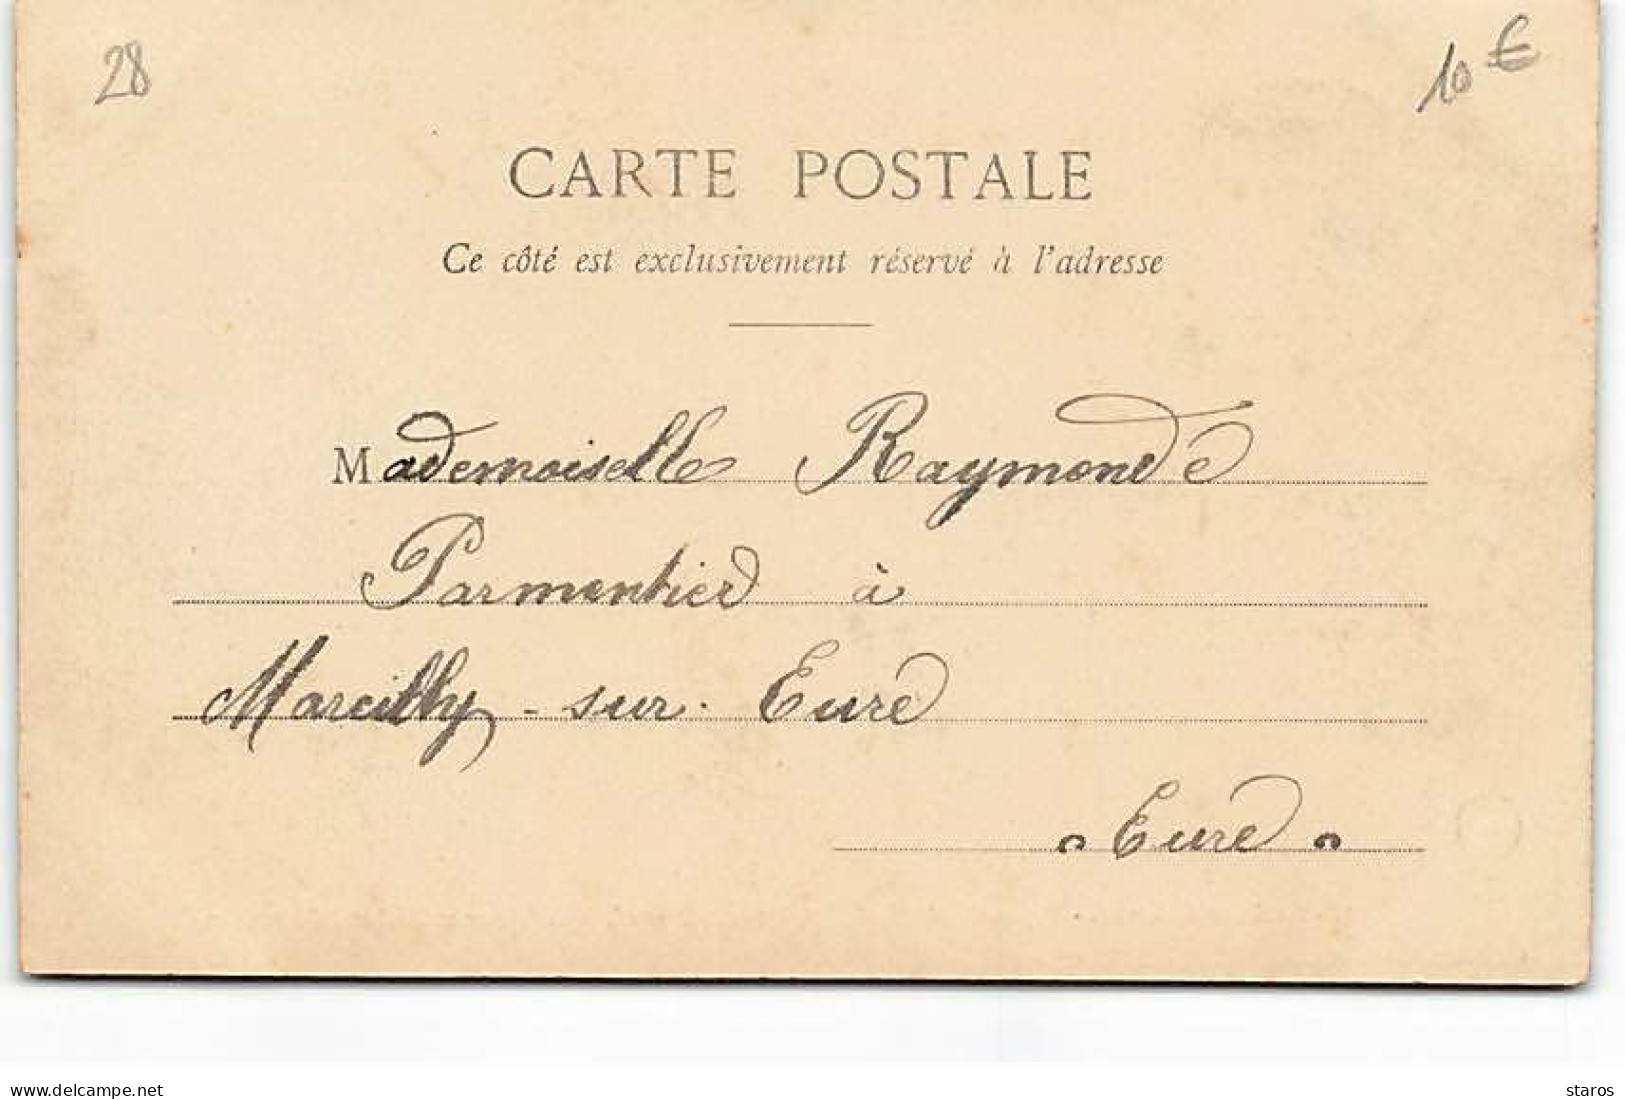 28
10 €
CARTE POSTALE
Ce côté est exclusivement réservé à l'adresse
Mademoiselle Raymonde
Parmentier à
Marcilly-sur-Eure
Eure
www.delcampe.net
staros